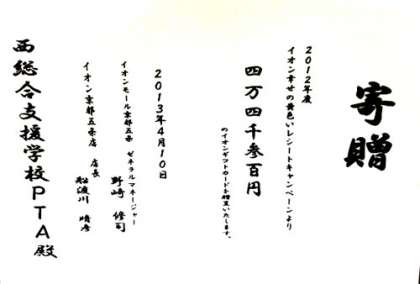 寄贈
2012年度
イオン幸せの黄色いレシートキャンペーンより
四万四千参百円
のイオンギフトカードを贈呈いたします。
2013年4月10日
イオンモール京都五条 ゼネラルマネージャー
野崎 修司
イオン京都五条店 店長
松波川 晴彦
西総合支援学校PTA殿